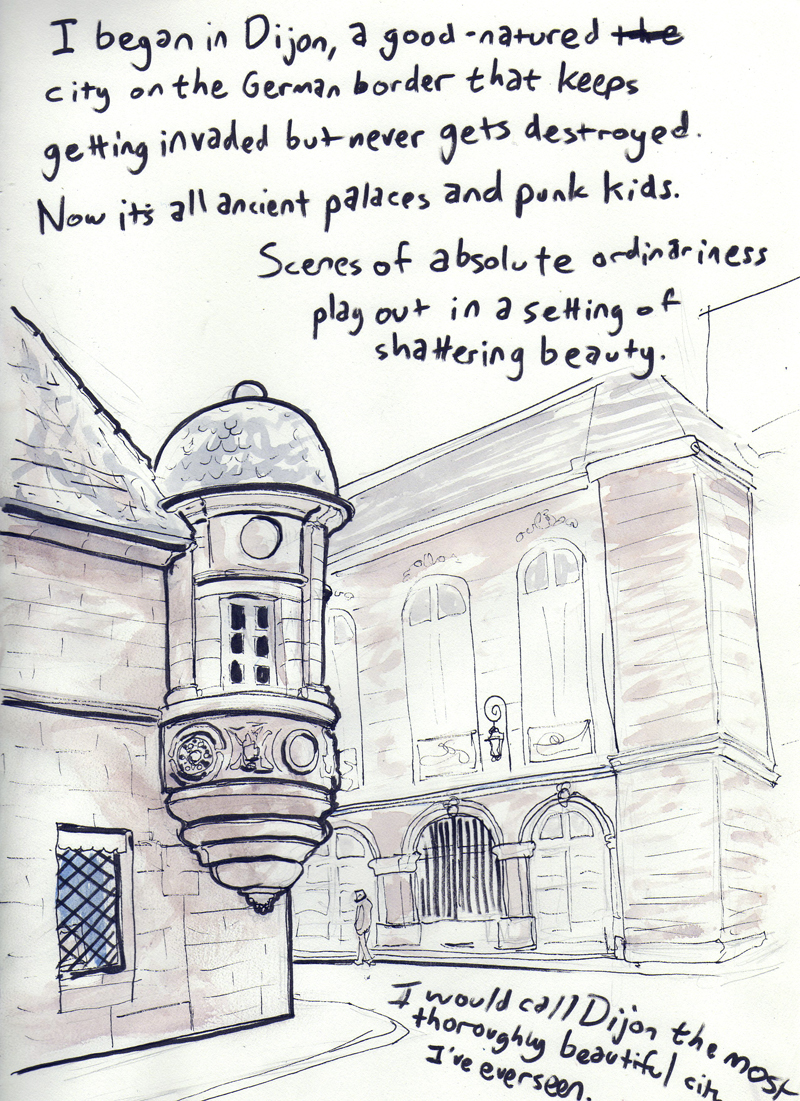 I began in Dijon, a good-natured the
city on the German border that keeps
getting invaded but never gets destroyed.
Now it's all ancient palaces and punk kids.
Scenes of absolute ordinariness
play out in a setting of
shattering beauty.
I would call Dijon the most
thoroughly beautiful city
I've ever seen.